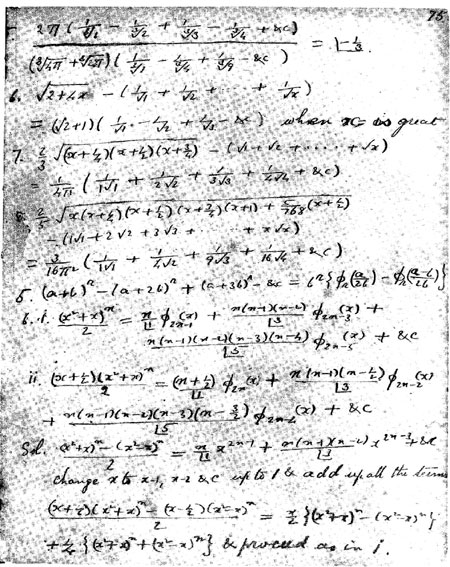 75
2π(1/∛1 - 1/∛2 + 1/∛3 - 1/∛4 + &c)
= |-1/3.
6. √(2+4x) - (1/√1 + 1/√2 + ... + 1/√x)
= (√2+1)(1/√1 - 1/√2 + 1/√3 - &c) when x is great
7. 2/3 √((x+1/4)(x+1/2)(x+3/4)) - (√1 + √2 + ..... + √x)
= 1/4π (1/1√1 + 1/2√2 + 1/3√3 + 1/4√4 + &c)
8. 2/5 √(x(x+1/4)(x+1/2)(x+3/4)(x+1) + 5/768 (x+1/2))
- (1√1 + 2√2 + 3√3 + ..... + x√x)
= 3/16π² (1/1√1 + 1/4√2 + 1/9√3 + 1/16√4 + &c)
5. (a+b)ⁿ - (a+2b)ⁿ + (a+3b)ⁿ - &c =
6. i. (x²+x)ⁿ/2 = n/|1 φ2n-1(x) + n(n-1)(n-2)/|3 φ2n-3(x) +
n(n-1)(n-2)(n-3)(n-4)/|5 φ2n-5(x) + &c
ii (x+1/2)(x²+x)ⁿ/2 = (n+1/2)/|1 φ2n(x) + n(n-1)(n-1/2)/|3 φ2n-2(x)
+ n(n-1)(n-2)(n-3)(n-3/2)/|5 φ2n-4(x) + &c
Sol. ((x²+x)ⁿ - (x²-x)ⁿ)/2 = n/|1 x²ⁿ⁻¹ + n(n-1)(n-2)/|3 x²ⁿ⁻³ + &c
change x to x-1, x-2 &c up to 1 & add up all the terms
((x+1/2)(x²+x)ⁿ - (x-1/2)(x²-x)ⁿ)/2 = x/2 {(x²+x)ⁿ - (x²-x)ⁿ}
+ 1/4 {(x²+x)ⁿ + (x²-x)ⁿ} & proceed as in i.